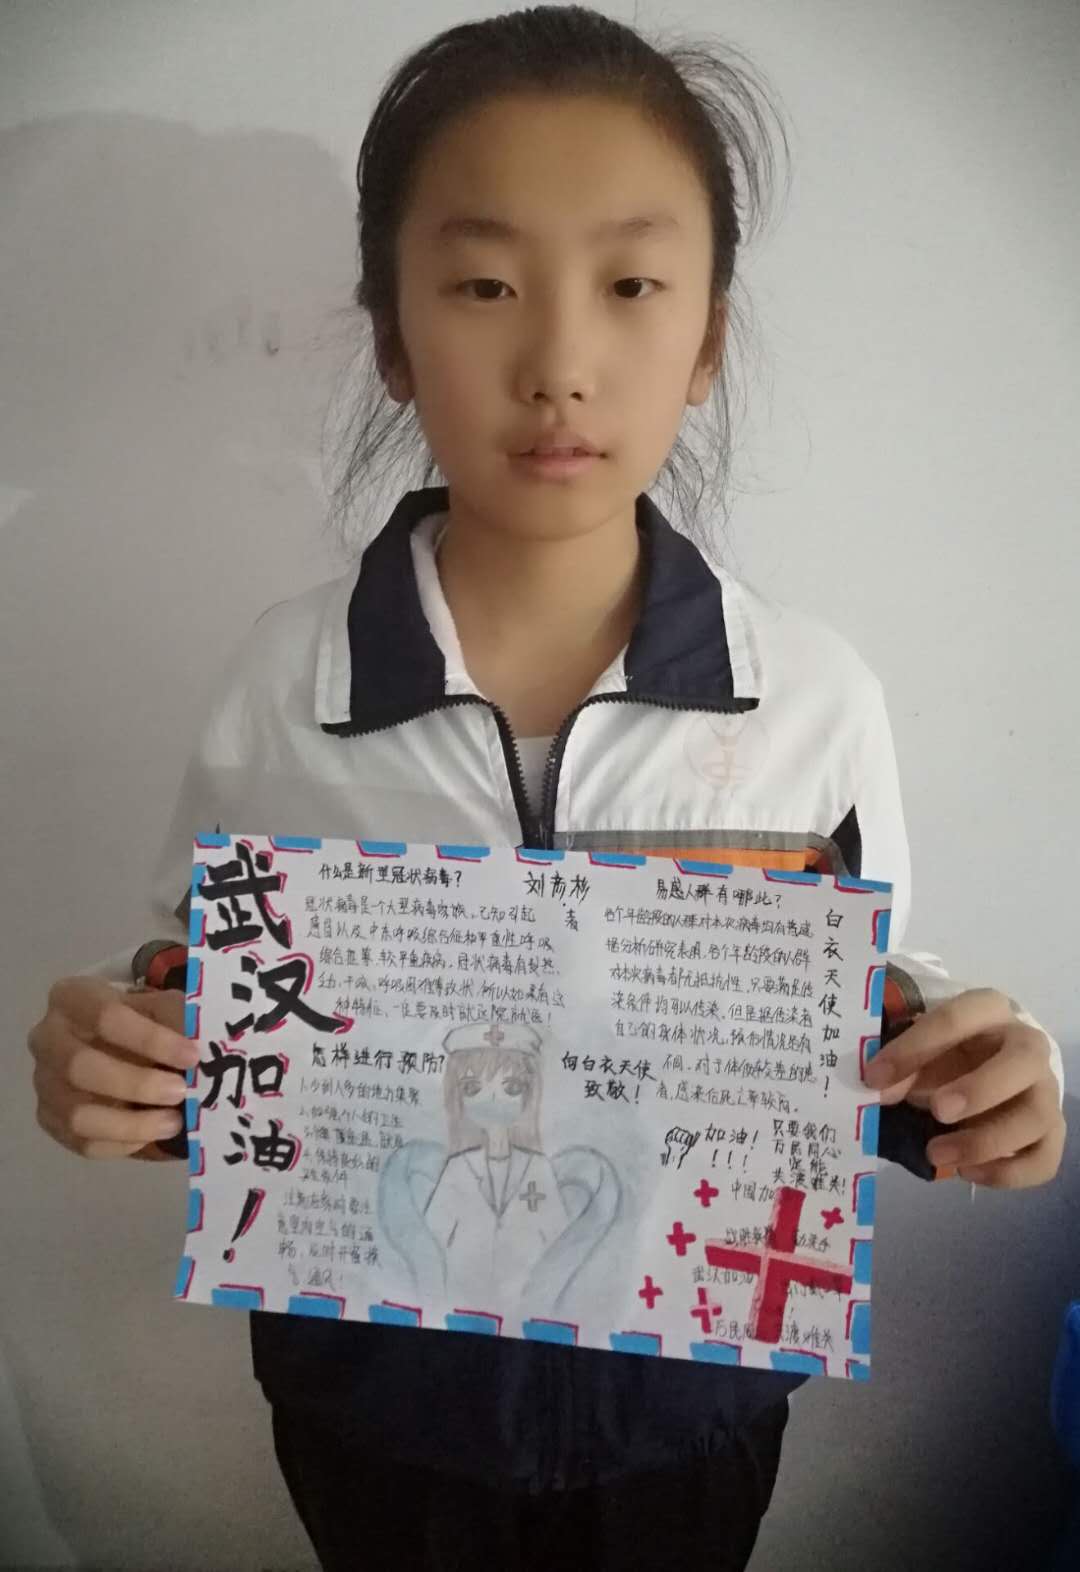 武汉加油！
什么是新型冠状病毒？
冠状病毒是一个大型病毒家族，已知引起
感冒以及中东呼吸综合征和严重性呼吸
综合征等较严重疾病，冠状病毒有发热、
干咳、呼吸困难等症状，所以如果有这
种特征，一定要及时就近院就医！
刘彦杉
者
易感人群有哪些？
各个年龄段的人群对本次病毒均有
据分析研究表明，各个年龄段的人群
对本次病毒都无抵抗性，只要满足传
染条件均可以传染，但是据传染者
自己的身体状况，情况是有
不同，对于体质较差的患
者，感染后死亡率较高。
白衣天使加油！
怎样进行预防？
1.少到人多的地方集聚
2.加强个人的卫生
注意在家时要注
意室内空气的通
畅，及时开窗换
气通风！
向白衣天使
致敬！
加油！
！！！
只要我们
万民同心
定能
共渡难关！
中国加
武汉加油
万民同
渡难关